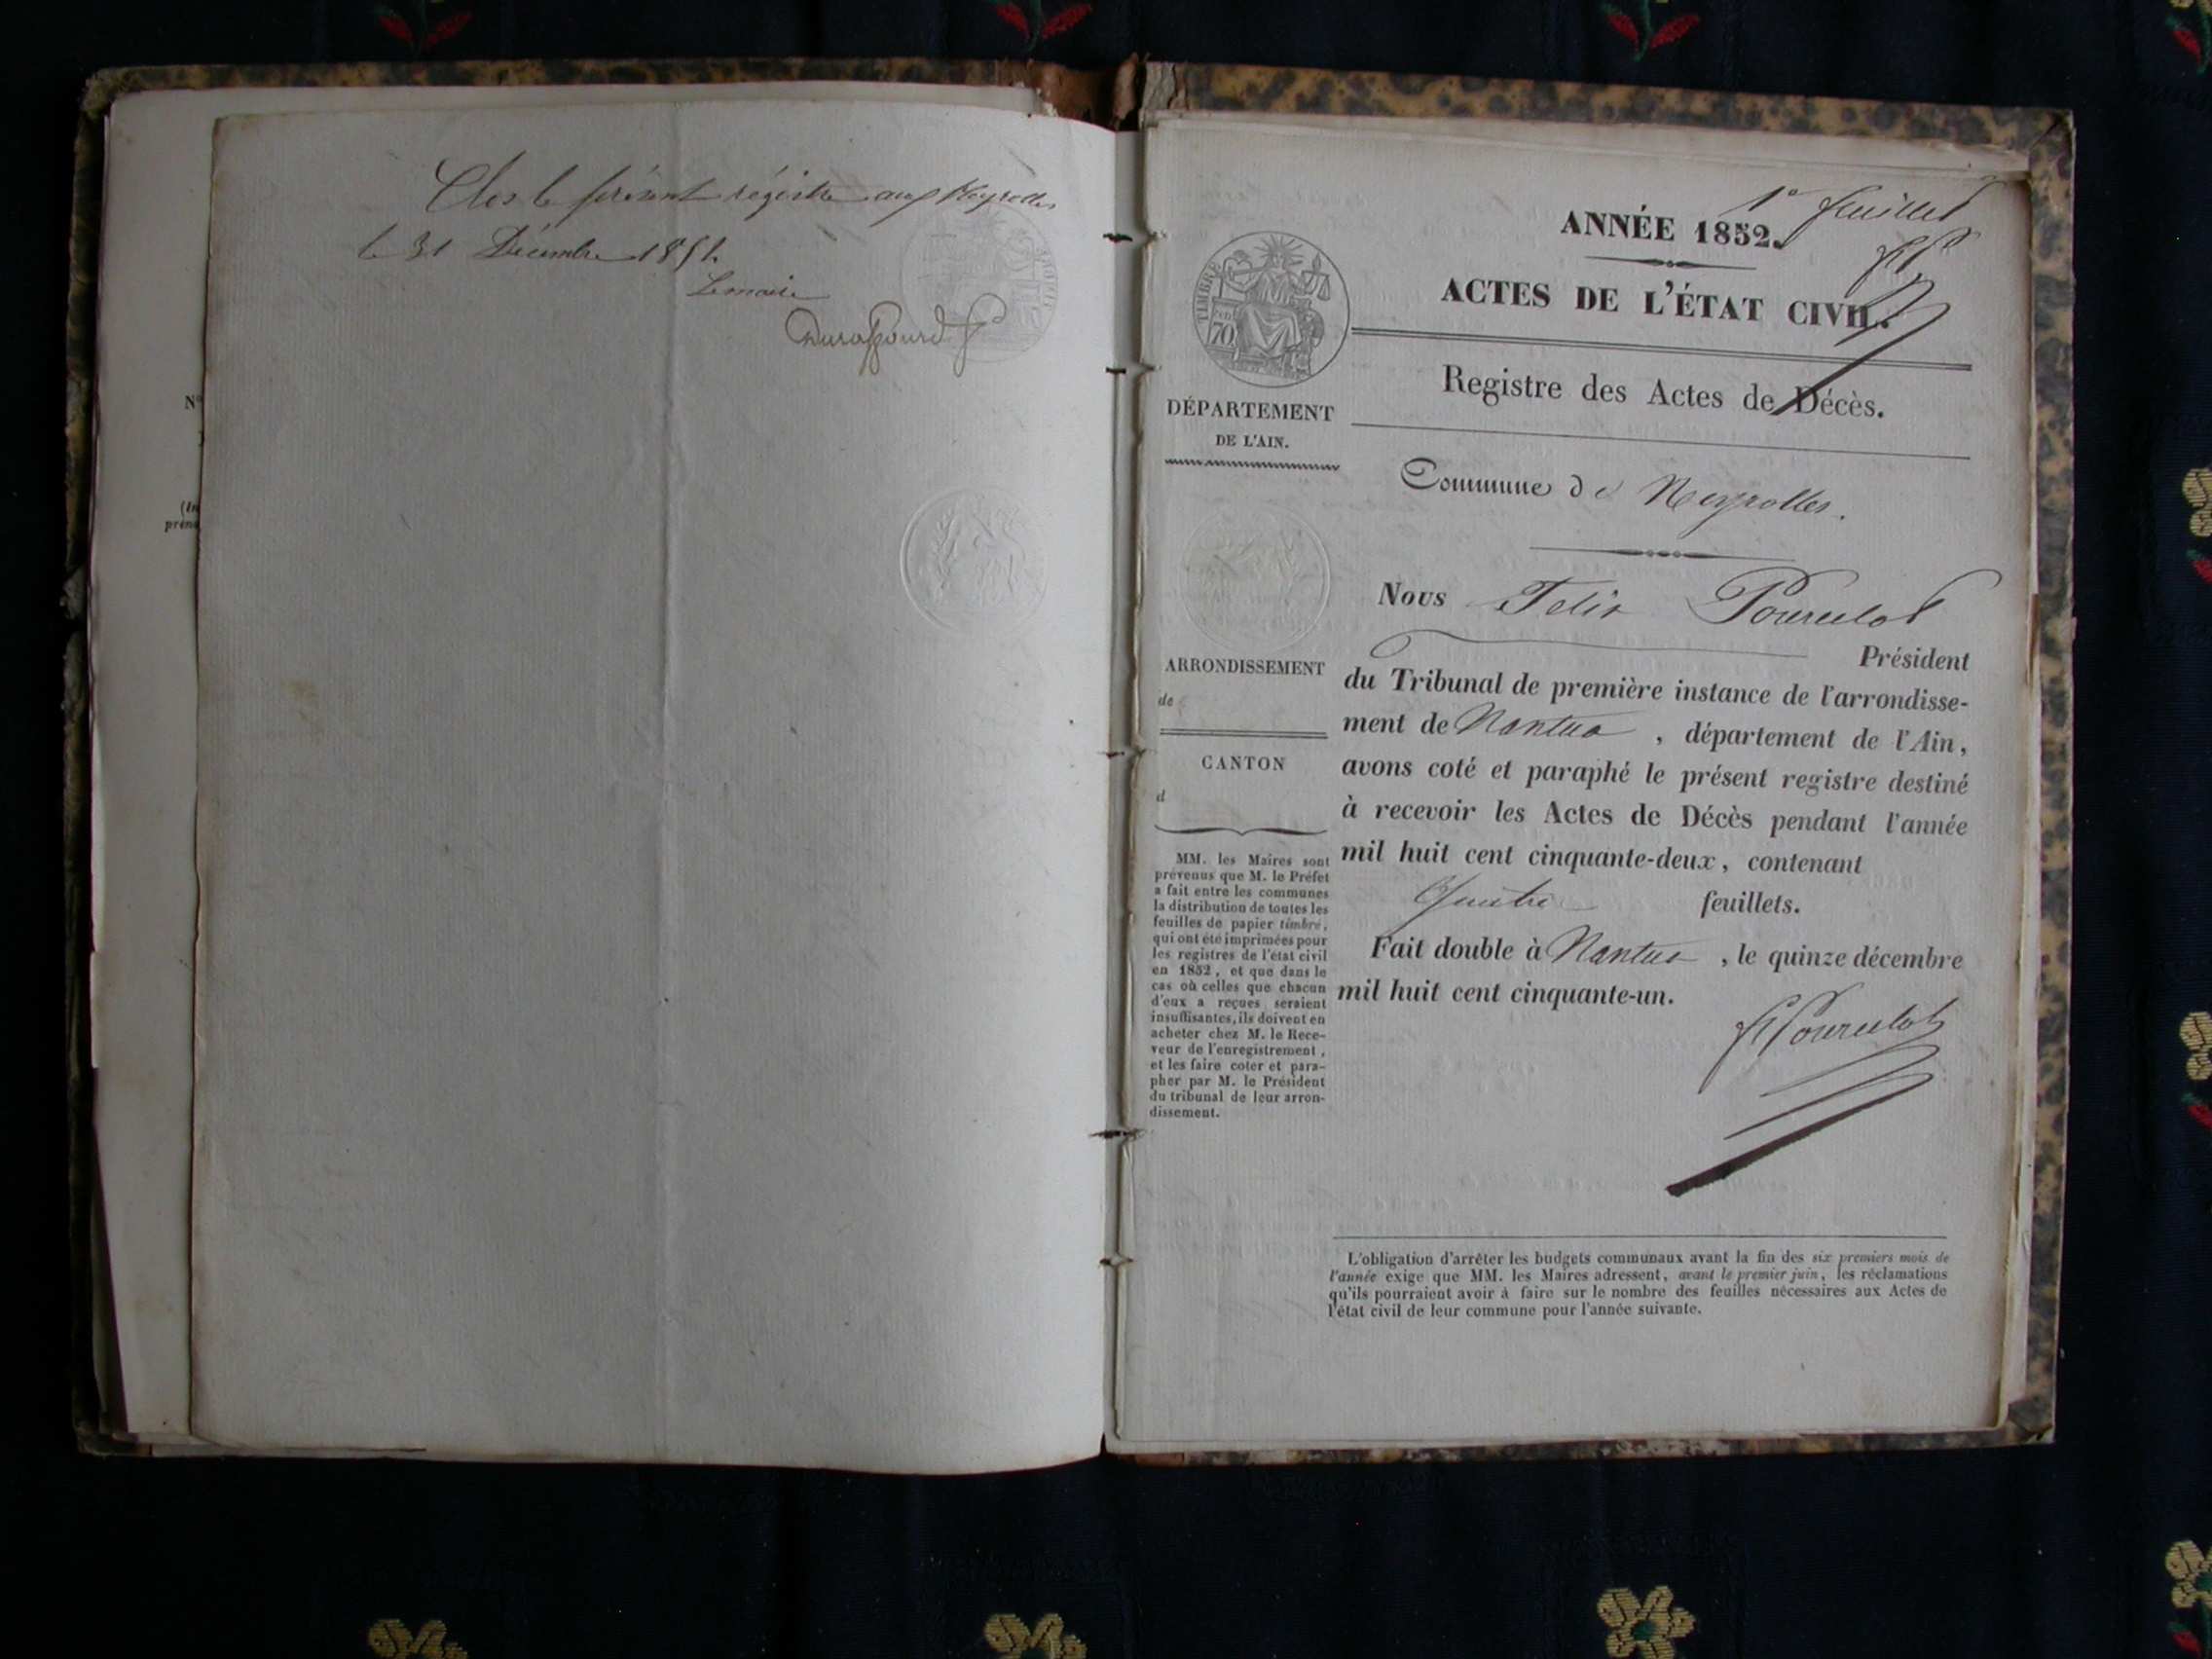 Clos le présent régistre aux Neyrolles
le 31 Décembre 1851.
Le maire
Durafourd
N°
(In
prén
1er feuillet
ANNÉE 1852.
ACTES DE L'ÉTAT CIVIL.
Registre des Actes de Décès.
TIMBRE
70
DÉPARTEMENT
DE L'AIN.
Commune de Neyrolles.
ARRONDISSEMENT
de
CANTON
d
MM. les Maires sont
prévenus que M. le Préfet
a fait entre les communes
la distribution de toutes les
feuilles de papier timbré,
qui ont été imprimées pour
les registres de l'état civil
en 1852, et que dans le
cas où celles que chacun
d'eux a reçues seraient
insuffisantes, ils doivent en
acheter chez M. le Rece-
veur de l'enregistrement,
et les faire coter et para-
pher par M. le Président
du tribunal de leur arron-
dissement.
Nous Felix Pourcelot
Président
du Tribunal de première instance de l'arrondisse-
ment de Nantua, département de l'Ain,
avons coté et paraphé le présent registre destiné
à recevoir les Actes de Décès pendant l'année
mil huit cent cinquante-deux, contenant
quatre feuillets.
Fait double à Nantua, le quinze décembre
mil huit cent cinquante-un.
F Pourcelot
L'obligation d'arrêter les budgets communaux avant la fin des six premiers mois de
l'année exige que MM. les Maires adressent, avant le premier juin, les réclamations
qu'ils pourraient avoir à faire sur le nombre des feuilles nécessaires aux Actes de
l'état civil de leur commune pour l'année suivante.